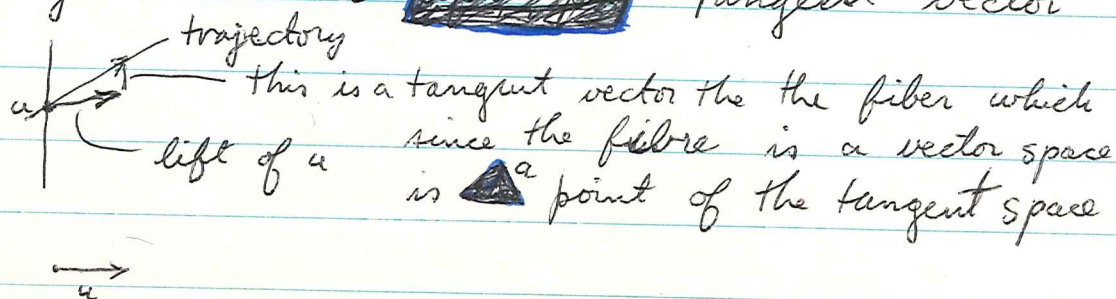 tangent vector
trajectory
u
this is a tangent vector the the fiber which
lift of u
since the fibre is a vector space
is a point of the tangent space
u